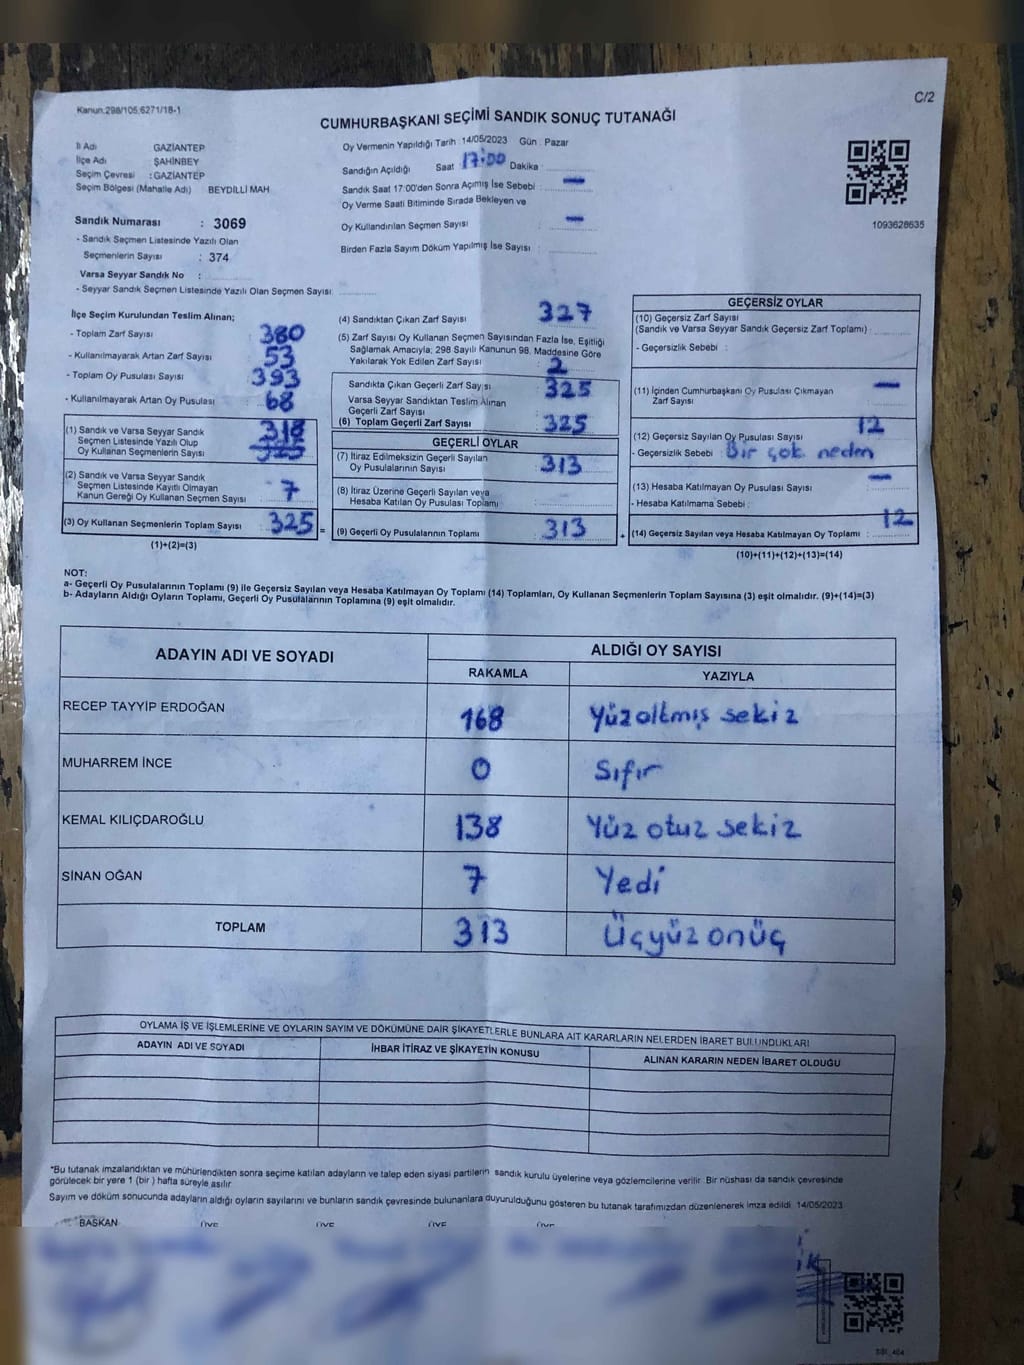 Kanun:298/105:6271/18-1
C/2
CUMHURBAŞKANI SEÇİMİ SANDIK SONUÇ TUTANAĞI
İl Adı GAZİANTEP
İlçe Adı ŞAHİNBEY
Seçim Çevresi : GAZİANTEP
Seçim Bölgesi (Mahalle Adı) BEYDİLLİ MAH
Oy Vermenin Yapıldığı Tarih : 14/05/2023 Gün : Pazar
Sandığın Açıldığı Saat 17:00 Dakika
Sandık Saat 17:00'den Sonra Açımış İse Sebebi : —
Oy Verme Saati Bitiminde Sırada Bekleyen ve
Oy Kullandırılan Seçmen Sayısı : —
Birden Fazla Sayım Döküm Yapılmış İse Sayısı :
1093628635
Sandık Numarası : 3069
- Sandık Seçmen Listesinde Yazılı Olan
Seçmenlerin Sayısı : 374
Varsa Seyyar Sandık No :
- Seyyar Sandık Seçmen Listesinde Yazılı Olan Seçmen Sayısı:
İlçe Seçim Kurulundan Teslim Alınan;
- Toplam Zarf Sayısı : 380
- Kullanılmayarak Artan Zarf Sayısı : 53
- Toplam Oy Pusulası Sayısı : 393
- Kullanılmayarak Artan Oy Pusulası : 68
(1) Sandık ve Varsa Seyyar Sandık
Seçmen Listesinde Yazılı Olup
Oy Kullanan Seçmenlerin Sayısı : 318
325
(2) Sandık ve Varsa Seyyar Sandık
Seçmen Listesinde Kayıtlı Olmayan
Kanun Gereği Oy Kullanan Seçmen Sayısı : 7
(3) Oy Kullanan Seçmenlerin Toplam Sayısı : 325 =
(1)+(2)=(3)
(4) Sandıktan Çıkan Zarf Sayısı : 327
(5) Zarf Sayısı Oy Kullanan Seçmen Sayısından Fazla İse, Eşitliği
Sağlamak Amacıyla; 298 Sayılı Kanunun 98. Maddesine Göre
Yakılarak Yok Edilen Zarf Sayısı : 2
Sandıkta Çıkan Geçerli Zarf Sayısı : 325
Varsa Seyyar Sandıktan Teslim Alınan
Geçerli Zarf Sayısı :
(6) Toplam Geçerli Zarf Sayısı : 325
GEÇERLİ OYLAR
(7) İtiraz Edilmeksizin Geçerli Sayılan
Oy Pusulalarının Sayısı : 313
(8) İtiraz Üzerine Geçerli Sayılan veya
Hesaba Katılan Oy Pusulası Toplamı :
(9) Geçerli Oy Pusulalarının Toplamı : 313 +
GEÇERSİZ OYLAR
(10) Geçersiz Zarf Sayısı
(Sandık ve Varsa Seyyar Sandık Geçersiz Zarf Toplamı) :
- Geçersizlik Sebebi :
(11) İçinden Cumhurbaşkanı Oy Pusulası Çıkmayan
Zarf Sayısı : —
(12) Geçersiz Sayılan Oy Pusulası Sayısı : 12
- Geçersizlik Sebebi : Bir çok neden
(13) Hesaba Katılmayan Oy Pusulası Sayısı : —
- Hesaba Katılmama Sebebi :
(14) Geçersiz Sayılan veya Hesaba Katılmayan Oy Toplamı : 12
(10)+(11)+(12)+(13)=(14)
NOT:
a- Geçerli Oy Pusulalarının Toplamı (9) ile Geçersiz Sayılan veya Hesaba Katılmayan Oy Toplamı (14) Toplamları, Oy Kullanan Seçmenlerin Toplam Sayısına (3) eşit olmalıdır. (9)+(14)=(3)
b- Adayların Aldığı Oyların Toplamı, Geçerli Oy Pusulalarının Toplamına (9) eşit olmalıdır.
ADAYIN ADI VE SOYADI
ALDIĞI OY SAYISI
RAKAMLA YAZIYLA
RECEP TAYYİP ERDOĞAN 168 Yüzaltmış sekiz
MUHARREM İNCE 0 Sıfır
KEMAL KILIÇDAROĞLU 138 Yüz otuz sekiz
SİNAN OĞAN 7 Yedi
TOPLAM 313 Üçyüz onüç
OYLAMA İŞ VE İŞLEMLERİNE VE OYLARIN SAYIM VE DÖKÜMÜNE DAİR ŞİKAYETLERLE BUNLARA AİT KARARLARIN NELERDEN İBARET BULUNDUKLARI
ADAYIN ADI VE SOYADI İHBAR İTİRAZ VE ŞİKAYETİN KONUSU ALINAN KARARIN NEDEN İBARET OLDUĞU
*Bu tutanak imzalandıktan ve mühürlendikten sonra seçime katılan adayların ve talep eden siyasi partilerin sandık kurulu üyelerine veya gözlemcilerine verilir. Bir nüshası da sandık çevresinde
görülecek bir yere 1 (bir ) hafta süreyle asılır.
Sayım ve döküm sonucunda adayların aldığı oyların sayılarını ve bunların sandık çevresinde bulunanlara duyurulduğunu gösteren bu tutanak tarafımızdan düzenlenerek imza edildi. 14/05/2023
BAŞKAN ÜYE ÜYE ÜYE ÜYE